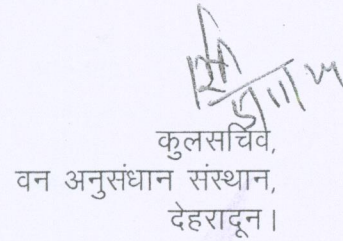 कुलसचिव,
वन अनुसंधान संस्थान,
देहरादून।